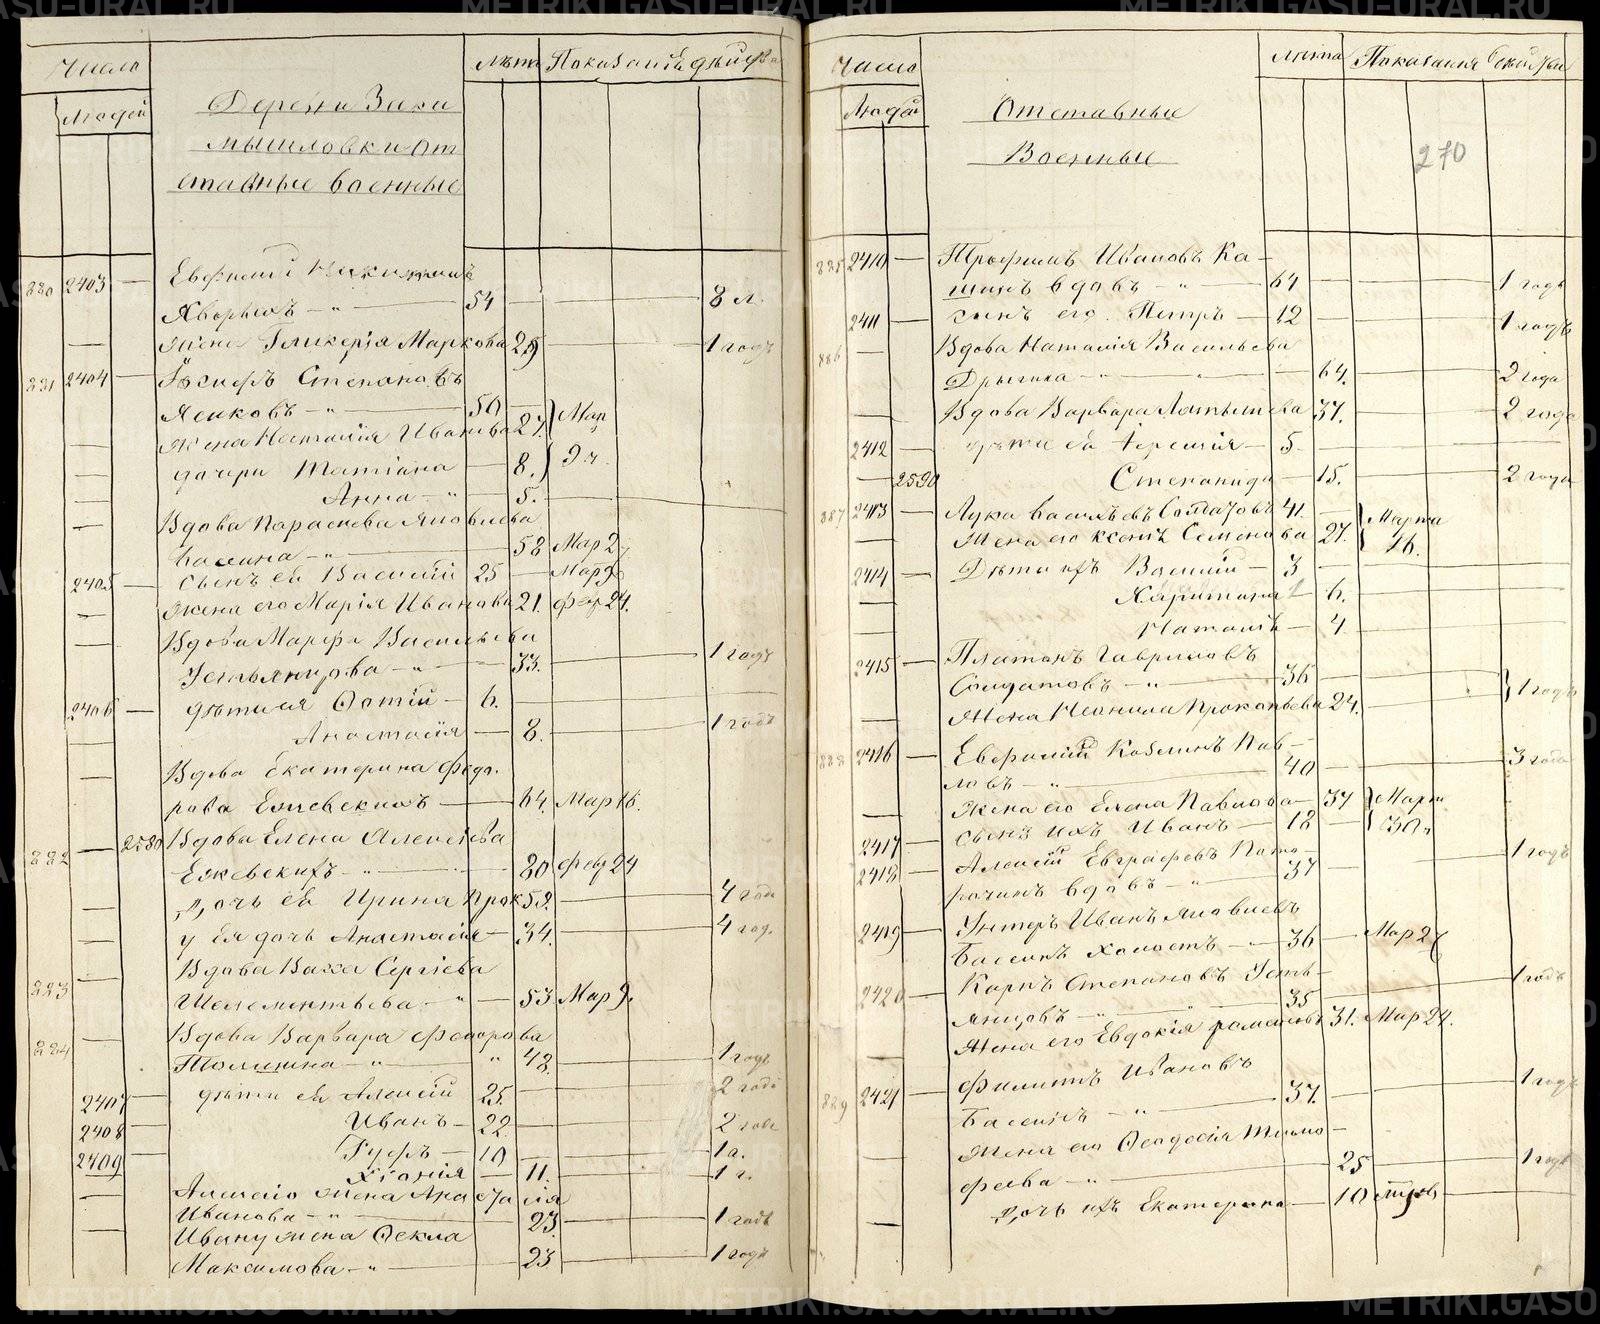 Число
Людей
Деревни Зики
мышловки От
ставные военные
лѣта
Показанiе дѣйств
880 2403 Евфимiй Никитинъ
Яворихъ 54 8 л.
жена Гликерiя Маркова 29 1 годъ
881 2404 Iосифъ Степановъ
50
жена Наталiя Иванова 27 Мар
дочери Татiана 8. 9 ч.
Анна 5.
Вдова Параскева Яковлева
Басина 58 Мар 27
2405 сынъ ея Василiй 25 Мар 9
жена его Марiя Иванова 21. фев 24.
Вдова Марфа Васильева
Устьянцова 33. 1 годъ
2406 дѣти ея Фотiй 6.
Анастасiя 8. 1 годъ
Вдова Екатерина Федо
рова Ежевскихъ 64. Мар 16.
882 2589 Вдова Елена Алексiева
Ежевскихъ 80 фев 24
дочь ея Ирина Прок 59. 4 года
у ея дочь Анастасiя 34. 4 год.
883 Вдова Васса Сергiева
Шелементьева 53 Мар 9.
884 Вдова Варвара Федорова
Томинина 48. 1 годъ
2407 дѣти ея Алексiй 25. 2 года
2408 Иванъ 22. 2 года
2409 Руфъ 10 1 г.
Хiонiя 11. 1 г.
Алексiю жена Анастасiя
Иванова 23. 1 годъ
Ивану жена Фекла
Максимова 23 1 годъ
Число
Людей
Отставные
Военные
лѣта
Показанiя дѣйств
270
885 2410 Трофимъ Ивановъ Ка
шинъ вдовъ 64 1 годъ
2411 сынъ его Петръ 12 1 годъ
886 Вдова Наталiя Васильева
Дрыгина 64. 2 года
Вдова Варвара Латышева 37. 2 года
2412 дѣти ея 5.
2590 Степанида 15. 2 года
887 2413 Лука Васильевъ Солдатовъ 41.
Жена его Ксенiя Семенова 27. Марта 16.
2414 Дѣти ихъ Василiй 3
Харитина 6.
Наталiя 4
2415 Платонъ Гавриловъ
Солдатовъ 36
Жена Неонила Прокопьева 24. 1 годъ
888 2416 Евфимiй Козминъ Пав
ловъ 40 3 года
Жена его Елена Павлова 37 Март
2417 Сынъ ихъ Иванъ 18 30
2418 Алексiй Евграфовъ Пато
рочинъ вдовъ 37 1 годъ
2419 Унтеръ Иванъ Яковлевъ
Басинъ холостъ 36 Мар 26
2420 Карпъ Степановъ Усть
янцовъ 35 1 годъ
Жена его Евдокiя Романова 31. Мар 24.
889 2421 Филипъ Ивановъ
Басинъ 37. 1 годъ
Жена его Феодосiя Тимо
феева 25 1 годъ
дочь ихъ Екатерина 10